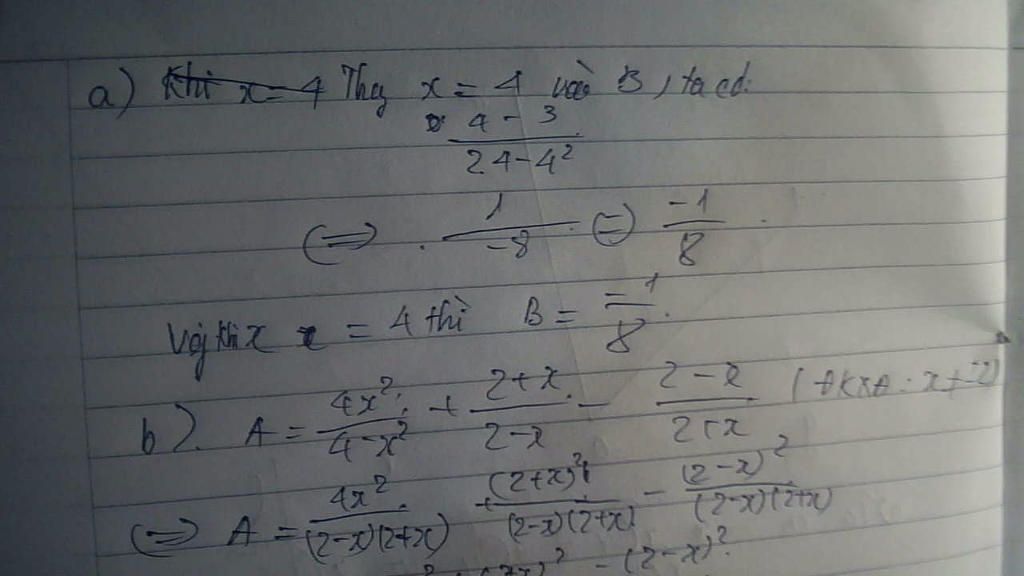 a) Khi x = 4 Thay x = 4 vào B, ta có:
4 - 3 / 24 - 4²
(⇔) 1 / -8 (=) -1 / 8
Vậy khi x = 4 thì B = -1 / 8.
b). A = 4x² / 4 - x² + 2 + x / 2 - x - 2 - x / 2 + x (ĐKXĐ: x ≠
(⇔) A = 4x² / (2-x)(2+x) + (2+x)² / (2-x)(2+x) - (2-x)² / (2-x)(2+x)
- (2-x)²